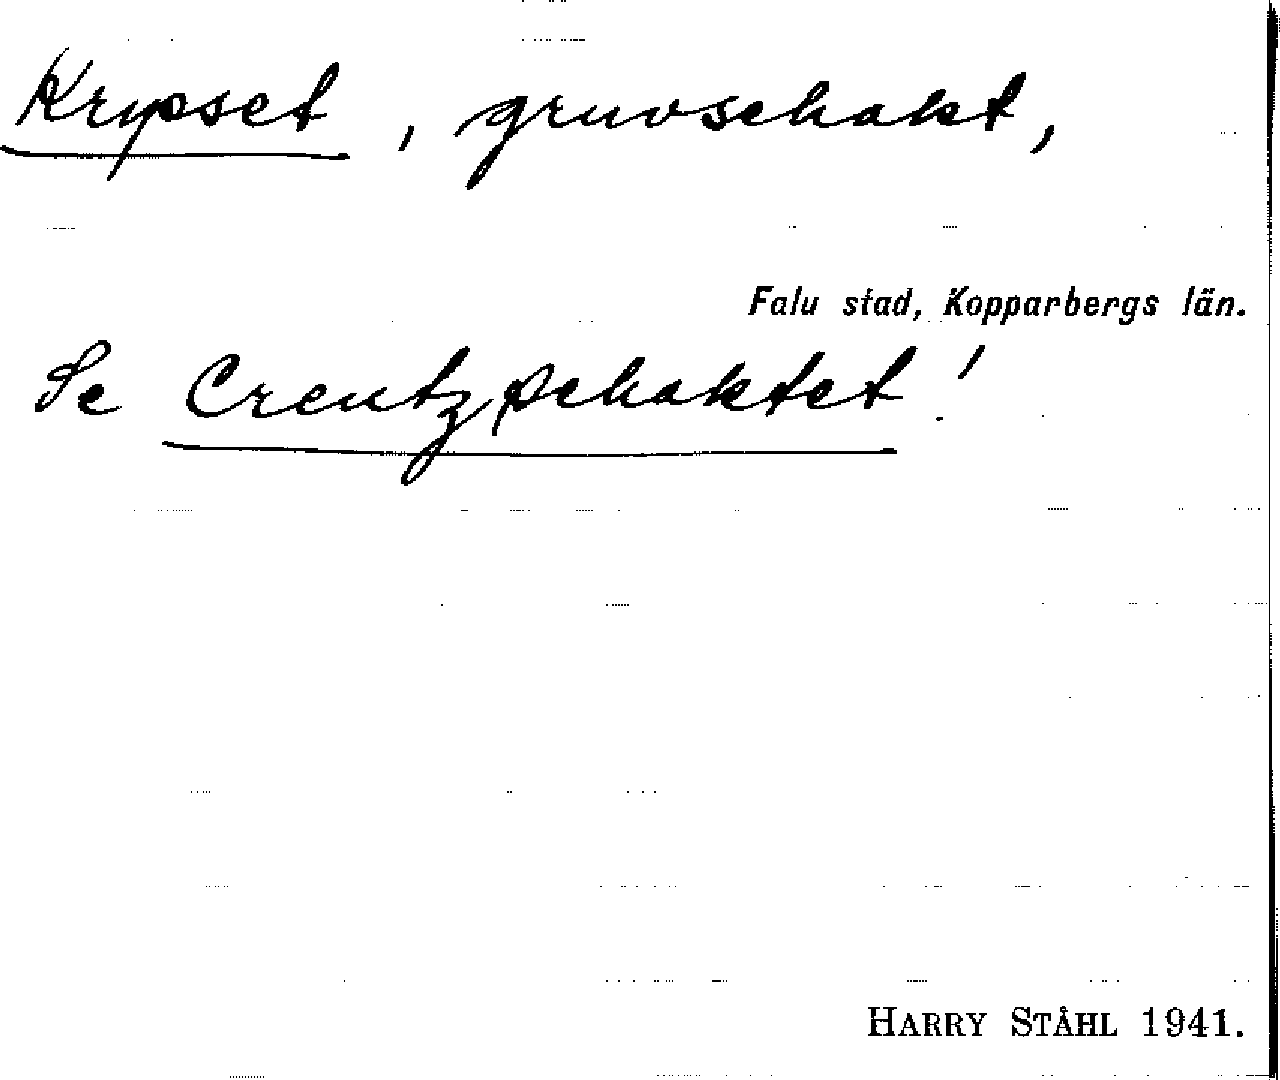 Krypset, gruvschakt,
Falu stad, Kopparbergs län.
Se Creutzschaktet!
HARRY STÅHL 1941.